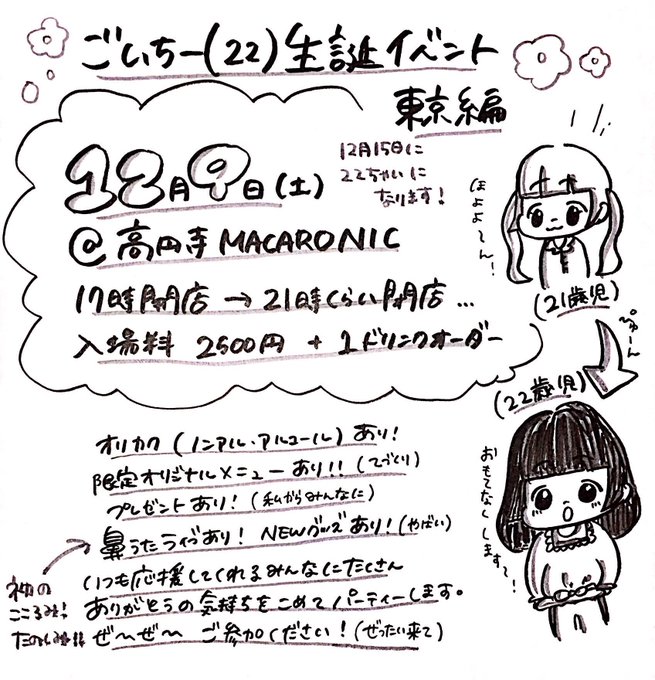 ごいちー(22)生誕イベント
東京編
12月9日(土)
12月15日に
22ちゃいに
なります!
@高円寺MACARONIC
17時開店→21時くらい閉店...
入場料 2500円 + 1ドリンクオーダー
ほよよ〜ん!
(21歳児)
ぴゅーん
(22歳児)
おもてなしします〜!
オリカク(ノンアル・アルコール)あり!
限定オリジナルメニューあり!!(てづくり)
プレゼントあり!(私からみんなに)
鼻うたライブあり! NEWグッズあり!(やばい)
初の
こころみ!
たのしみ!!
いつも応援してくれるみんなにたくさん
ありがとうの気持ちをこめてパーティーします。
ぜ〜ぜ〜 ご参加ください!(ぜったい来て)